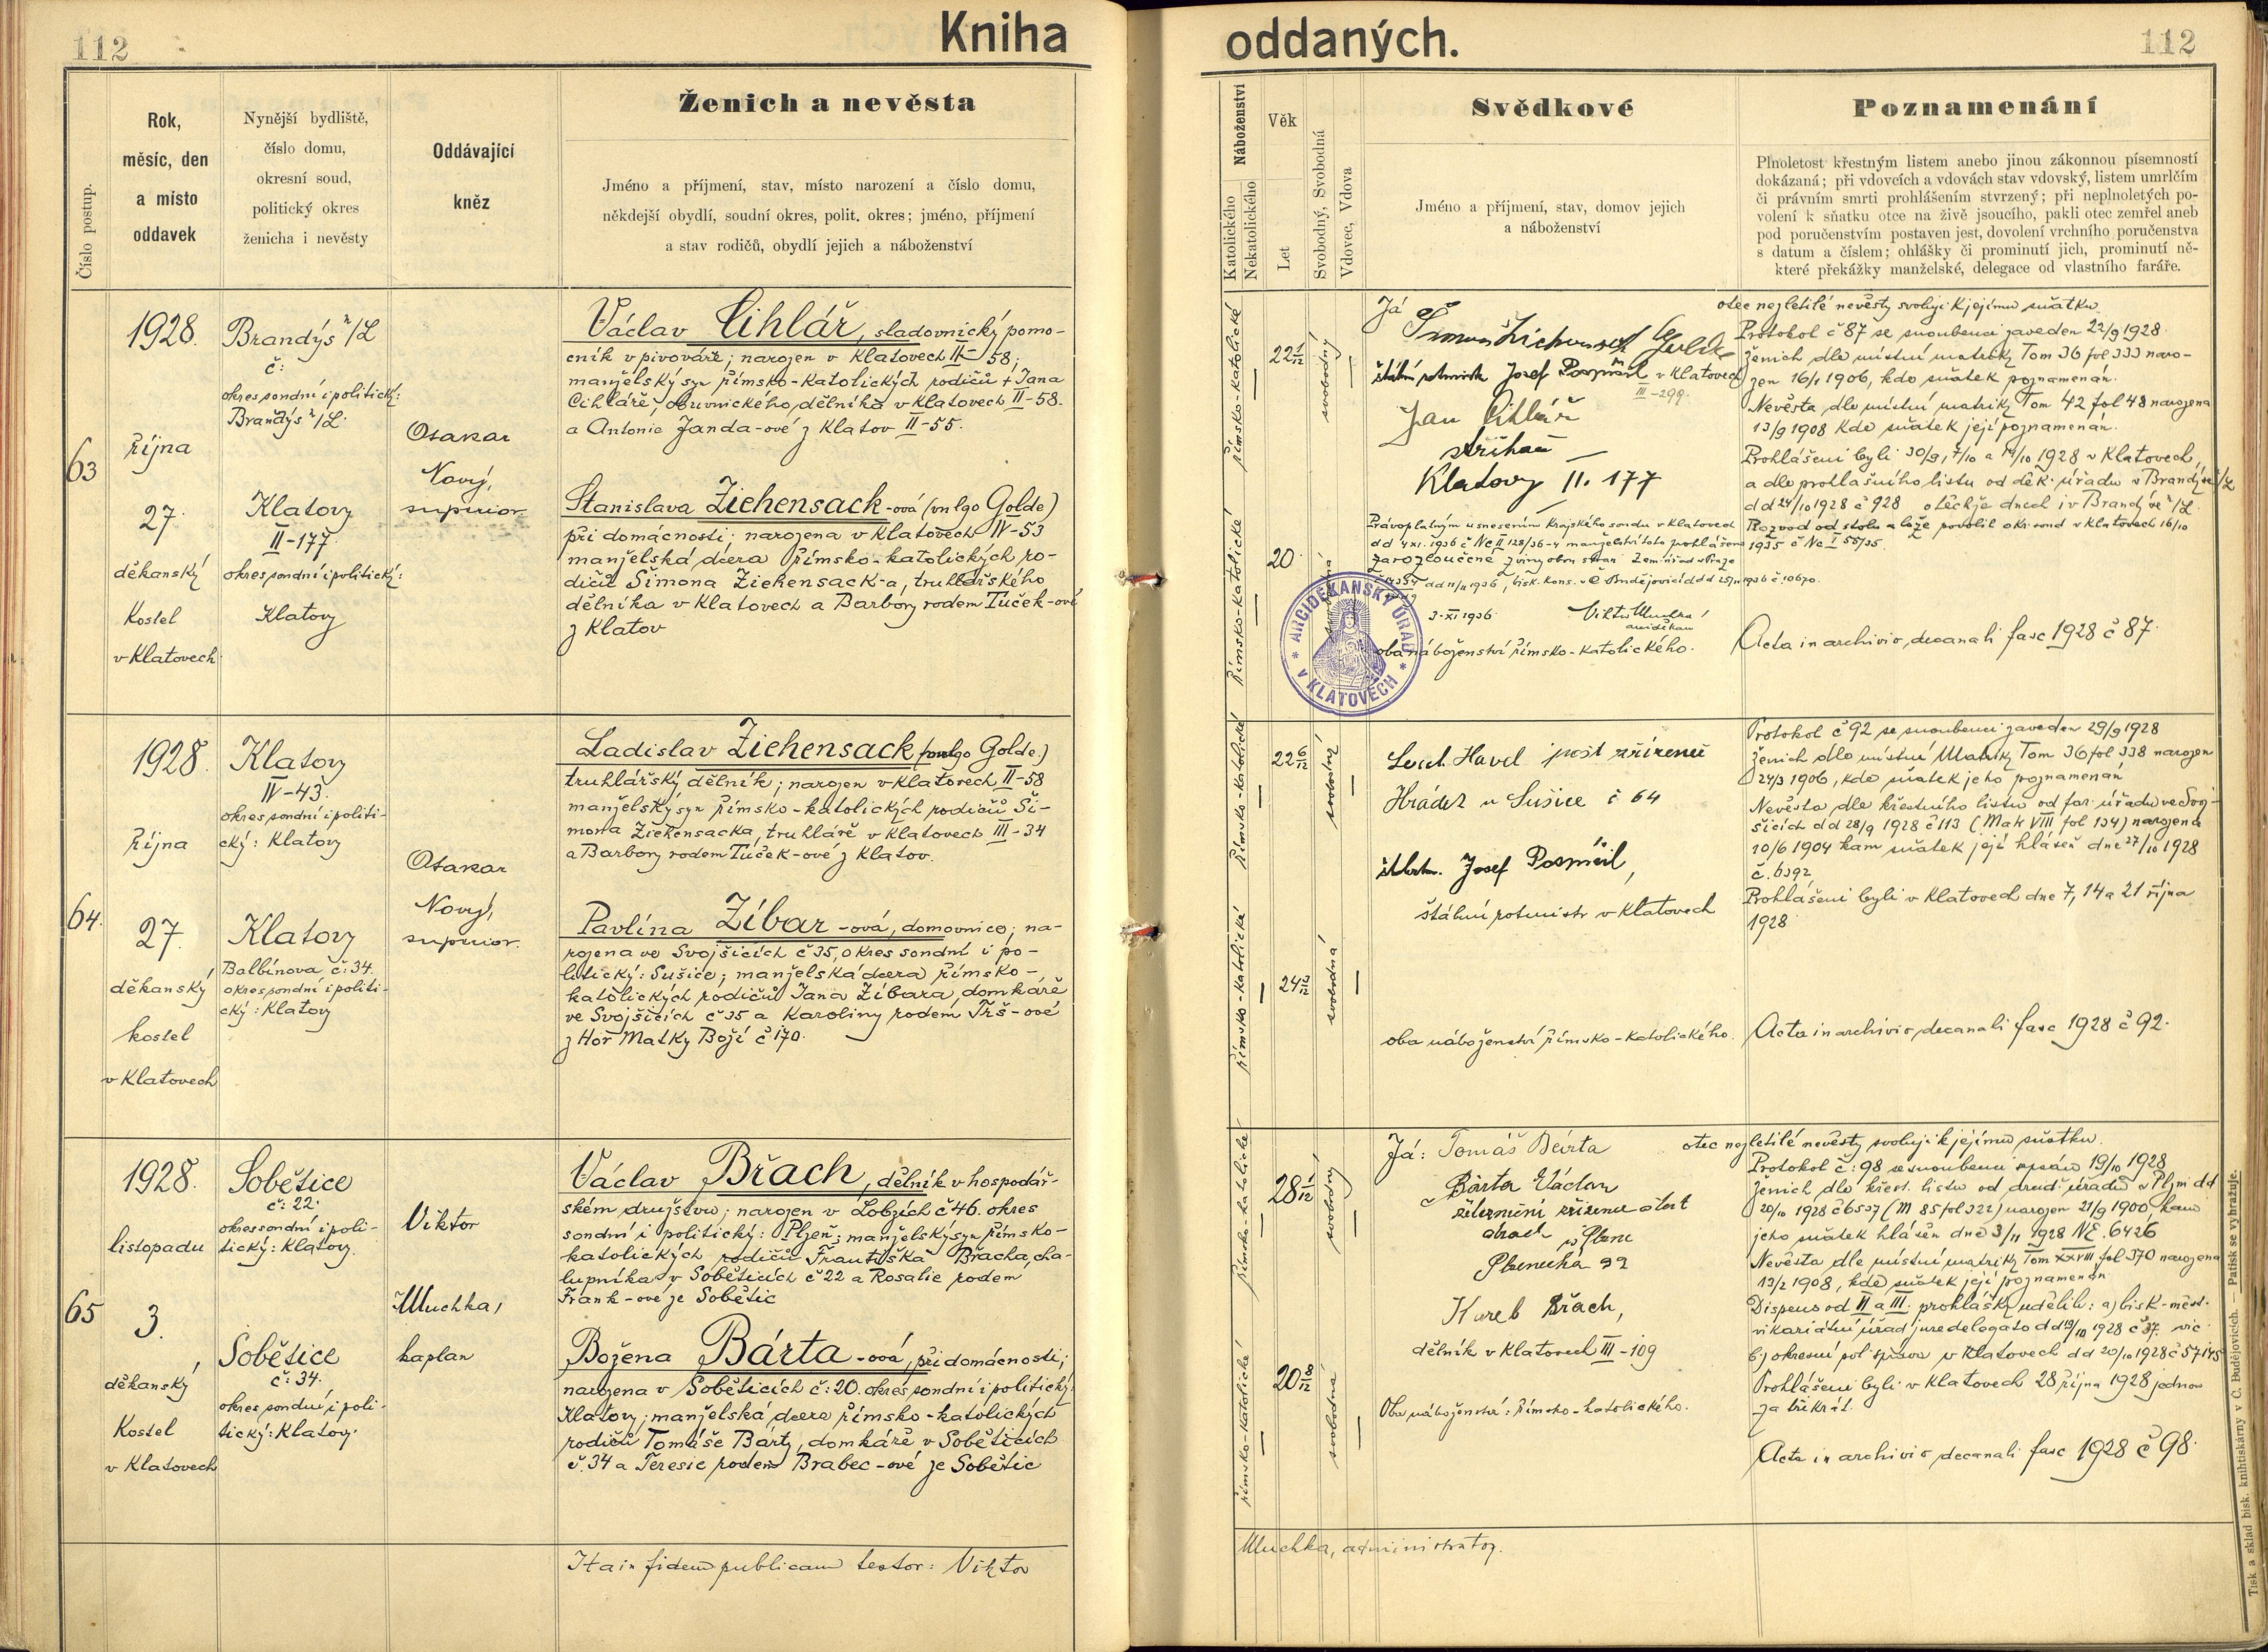 112
Kniha
Číslo postup.
Rok,
měsíc, den
a místo
oddavek
Nynější bydliště,
číslo domu,
okresní soud,
politický okres
ženicha i nevěsty
Oddávající
kněz
Ženich a nevěsta
Jméno a příjmení, stav, místo narození a číslo domu,
někdejší obydlí, soudní okres, polit. okres; jméno, příjmení
a stav rodičů, obydlí jejich a náboženství
63
1928.
října
27.
děkanský
kostel
v Klatovech
Brandýs n/L
č:
okres soudní i politický:
Brandýs n/L.
Klatovy
II-177
okres soudní i politický:
Klatovy
Otakar
Nový,
superior.
Václav Cihlář, sladovnický pomo-
cník v pivováře; narozen v Klatovech II-58;
manželský syn římsko-katolických rodičů + Jana
Cihláře, obuvnického dělníka v Klatovech II-58.
a Antonie Janda-ové z Klatov II-55.
Stanislava Ziehensack-ová (vulgo Golde)
při domácnosti; narozena v Klatovech IV-53
manželská dcera římsko-katolických ro-
dičů Šimona Ziehensack-a, truhlářského
dělníka v Klatovech a Barbory rodem Tuček-ové
z Klatov
64.
1928.
října
27.
děkanský
kostel
v Klatovech
Klatovy
IV-43.
okres soudní i politi-
cký: Klatovy
Klatovy
Balbínova č: 34.
okres soudní i politi-
cký: Klatovy
Otakar
Nový,
superior.
Ladislav Ziehensack (vulgo Golde.)
truhlářský dělník; narozen v Klatovech II-58
manželský syn římsko-katolických rodičů Ši-
mona Ziehensacka, truhláře v Klatovech III-34
a Barbory rodem Tuček-ové z Klatov.
Pavlína Zíbar-ová, domovnice; na-
rozena ve Svojšicích č 35, okres soudní i po-
litický: Sušice; manželská dcera římsko-
katolických rodičů Jana Zíbara, domkáře
ve Svojšicích č 35 a Karoliny rodem Trš-ové
z Hor Matky Boží č 170.
65
1928.
listopadu
3.
děkanský
Kostel
v Klatovech
Soběšice
č: 22.
okres soudní i poli-
tický: Klatovy.
Soběšice
č: 34.
okres soudní i poli-
tický: Klatovy.
Viktor
Muchka,
kaplan
Václav Břach, dělník v hospodář-
ském družstvu; narozen v Lobzích č 46. okres
soudní i politický: Plzeň; manželský syn římsko-
katolických rodičů Františka Břacha, cha-
lupníka v Soběšicích č 22 a Rosalie rodem
Frank-ové ze Soběšic
Božena Bárta-ová, při domácnosti;
narozena v Soběšicích č: 20. okres soudní i politický:
Klatovy; manželská dcera římsko-katolických
rodičů Tomáše Bárty, domkáře v Soběšicích
č. 34 a Teresie rodem Brabec-ové ze Soběšic
Ita in fidem publicam testor: Viktor
oddaných.
112
Náboženství
Katolického
Nekatolického
Věk
Let
Svobodný, Svobodná
Vdovec, Vdova
Svědkové
Jméno a příjmení, stav, domov jejich
a náboženství
Poznamenání
Plnoletost křestným listem anebo jinou zákonnou písemností
dokázaná; při vdovcích a vdovách stav vdovský, listem umrlčím
či právním smrti prohlášením stvrzený; při neplnoletých po-
volení k sňatku otce na živě jsoucího, pakli otec zemřel aneb
pod poručenstvím postaven jest, dovolení vrchního poručenstva
s datum a číslem; ohlášky či prominutí jich, prominutí ně-
které překážky manželské, delegace od vlastního faráře.
římsko-katolické
22
svobodný
římsko-katolické
20
Já
štábní rotmistr Josef Pospíšil v Klatovech
III-299.
Jan Cihlář
strihač
Klatovy II. 177
Právoplatným usnesením Krajského soudu v Klatovech
dd 4 XI. 1936 č Nc II 128/36-4 manželství toto prohlášeno
za rozloučené z viny obou stran
3-XI 1936
arciděkan
ARCIDĚKANSKÝ ÚŘAD
V KLATOVECH
oba náboženství římsko-katolického.
otec nezletilé nevěsty svoluji k jejímu sňatku.
Protokol č 87 se snoubenci zaveden 22/9 1928.
Ženich dle místní matriky Tom 36 fol 333 naro-
zen 16/1 1906, kdo sňatek poznamenán.
Nevěsta dle místní matriky Tom 42 fol 48 narozena
13/9 1908 kde sňatek její poznamenán.
Prohlášeni byli 30/9, 7/10 a 14/10 1928 v Klatovech,
a dle prohlašního listu od děk. úřadu v Brandýse n/L
dd 24/10 1928 č 928 v těchže dnech i v Brandýse n/L.
Rozvod od stolu a lože povolil okr. soud v Klatovech 16/10
1935 č Nc I 55/35.
Acta in archivio decanali fasc 1928 č 87.
římsko-katolické
22 6/12
svobodný
římsko-katolická
24 3/12
svobodná
Havel pošt. zřízenec
Hrádek u Sušice č 64
št. rtm. Josef Pospíšil,
štábní rotmistr v Klatovech
oba náboženství římsko-katolického.
Protokol č 92 se snoubenci zaveden 29/9 1928
Ženich dle místní Matriky Tom 36 fol 338 narozen
24/3 1906, kde sňatek jeho poznamenán
Nevěsta dle křestního listu od far. úřadu ve Svoj-
šicích dd 28/9 1928 č 113 (Mat VIII fol 134) narozena
10/6 1904 kam sňatek její hlášen dne 27/10 1928
č. 6392
Prohlášeni byli v Klatovech dne 7, 14 a 21 října
1928.
Acta in archivio decanali fasc 1928 č 92.
římsko-katolické
28 1/12
svobodný
římsko-katolické
20 8/12
svobodná
Já: Tomáš Bárta
Bárta Václav
železniční zřízenec
v Plzni
Břach,
dělník v Klatovech III-109
Oba náboženství: římsko-katolického.
otec nezletilé nevěsty svoluji k jejímu sňatku.
Protokol č: 98 se snoubenci sepsán 19/10 1928
Ženich dle křest. listu od úřadu v Plzni dd
20/10 1928 č 6537 (M 85 fol 322) narozen 21/9 1900, kam
jeho sňatek hlášen dne 3/11 1928 NE. 6426
Nevěsta dle místní matriky Tom XXXVIII fol 370 narozena
13/2 1908, kde sňatek její poznamenán
Dispens od II a III. prohlášky udělily: a) bisk-měst.
vikariátní úřad jure delegato dd 19/10 1928 č 37. vic
b) okresní pol. správa v Klatovech dd 20/10 1928 č 57145
Prohlášeni byli v Klatovech 28 října 1928 jednou
za třikrát.
Acta in archivio decanali fasc 1928 č 98.
Muchka, administrator.
Tisk a sklad bisk. knihtiskárny v Č. Budějovicích. — Patisk se vyhražuje.